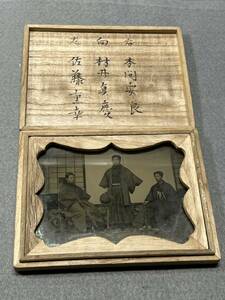 右 本間良
向 村井慶
左 佐藤重章